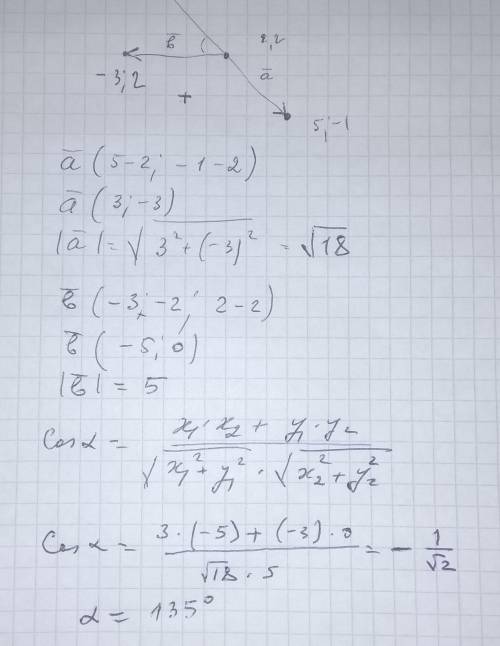 b̅ 2,2
-3; 2 a̅
+ 5; -1
a̅ (5-2; -1-2)
a̅ (3; -3)
|a̅| = √3² + (-3)² = √18
b̅ (-3; -2; 2-2)
b̅ (-5; 0)
|b̅| = 5
Cos α = x₁·x₂ + y₁·y₂ / √x₁² + y₁² · √x₂² + y₂²
Cos α = 3·(-5) + (-3)·0 / √18 · 5 = - 1/√2
α = 135°